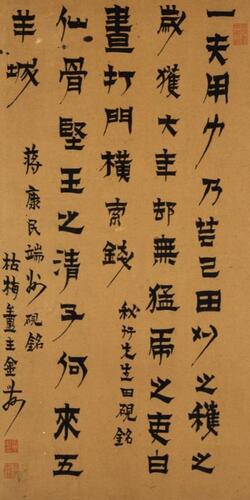 一夫用力乃芸己田刈之穫之
歲獲大年却無猛虎之吏白
晝打門橫索錢
秋竹先生田硯銘
仙骨堅玉之清子何來五
羊城
蔣康民端州硯銘
枯梅盦主金農